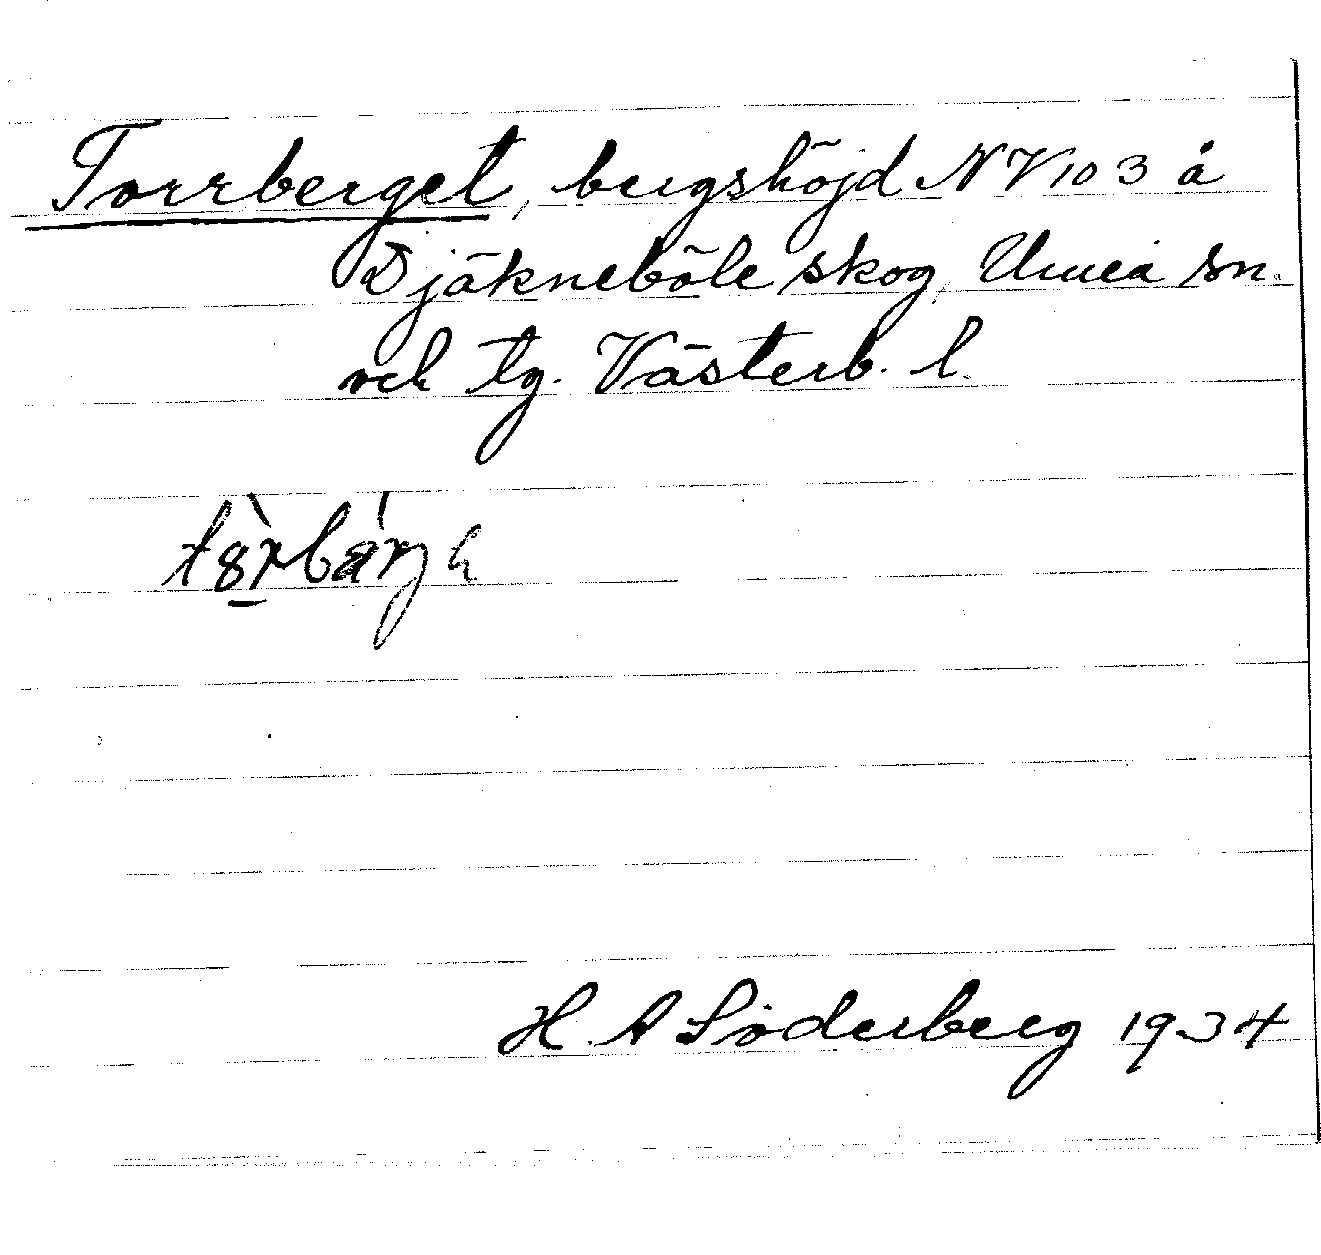 Torrberget, bergshöjd NV103 å
Djäkneböle skog, Umeå sn.
och tg. Västerb. l.
H. A Söderberg 1934